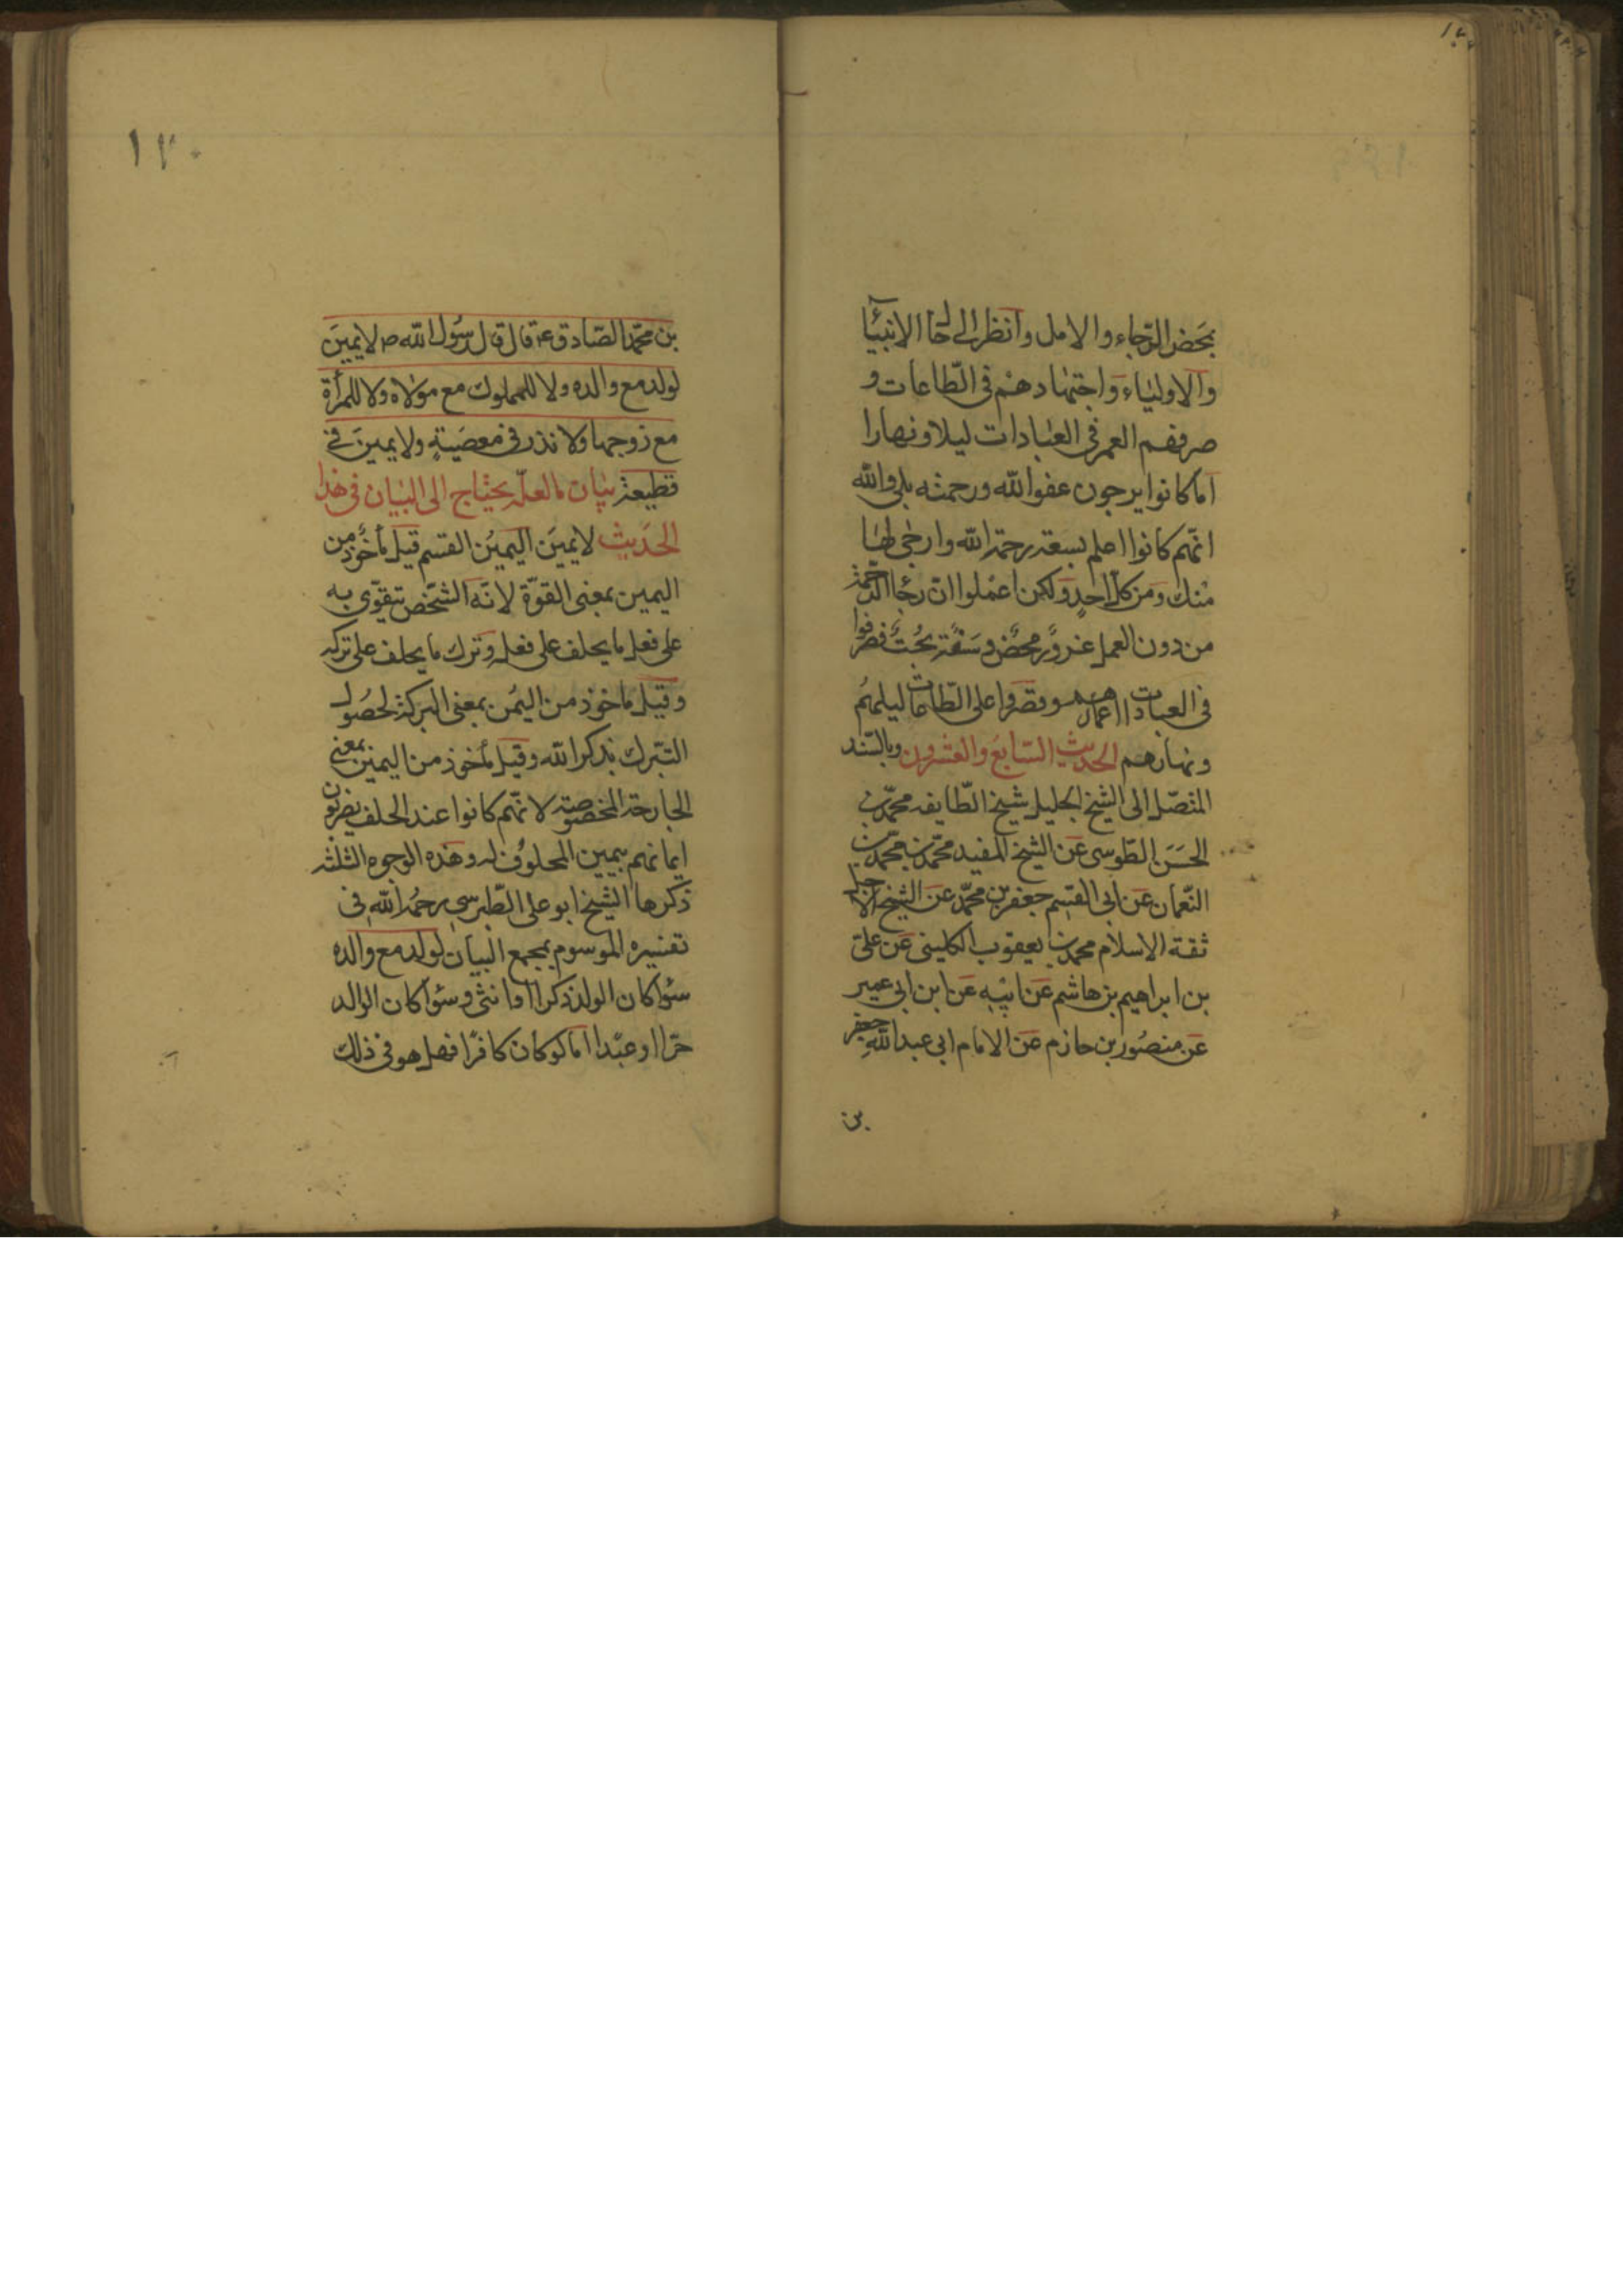 بمحض الرجاء والامل وانظر الى حال الانبيا
والاولياء واجتهادهم فى الطاعات و
صرفهم العمر فى العبادات ليلا ونهارا
اما كانوا يرجون عفو الله ورحمته بلى والله
انهم كانوا اعلم بسعة رحمة الله وارجى لها
منك ومن كل احد ولكن اعملوا ان رجاء الرحمة
من دون العمل غرور محض وسفه بحت فصرفوا
فى العبادات اعمارهم وقصروا على الطاعات ليلهم
ونهارهم الحديث السابع والعشرون وبالسند
المتصل الى الشيخ الجليل شيخ الطايفه محمد بن
الحسن الطوسى عن الشيخ المفيد محمد بن محمد بن
النعمان عن ابى القسم جعفر بن محمد عن الشيخ الاجل
ثقة الاسلام محمد بن يعقوب الكلينى عن على
بن ابراهيم بن هاشم عن ابيه عن ابن ابى عمير
عن منصور بن حازم عن الامام ابى عبد الله جعفر
بن
١٧٠
بن محمد الصادق ع قال قال رسول الله ص لا يمين
لولد مع والده ولا للمملوك مع مولاه ولا للمرأة
مع زوجها ولا نذر فى معصية ولا يمين فى
قطيعة بيان ما لعله يحتاج الى البيان فى هذا
الحديث لا يمين اليمين القسم قيل مأخوذ من
اليمين بمعنى القوة لانه الشخص يتقوى به
على فعل ما يحلف على فعله وترك ما يحلف على تركه
وقيل ماخوذ من اليمن بمعنى البركة لحصول
التبرك بذكر الله وقيل مأخوذ من اليمين بمعنى
الجارحة المخصوصة لانهم كانوا عند الحلف يضربون
ايمانهم بيمين المحلوف له وهذه الوجوه الثلثه
ذكرها الشيخ ابو على الطبرسى رحمه الله فى
تفسيره الموسوم بمجمع البيان لولد مع والده
سواء كان الولد ذكرا او انثى وسواء كان الوالد
حرا او عبدا اما لو كان كافرا فهل هو فى ذلك